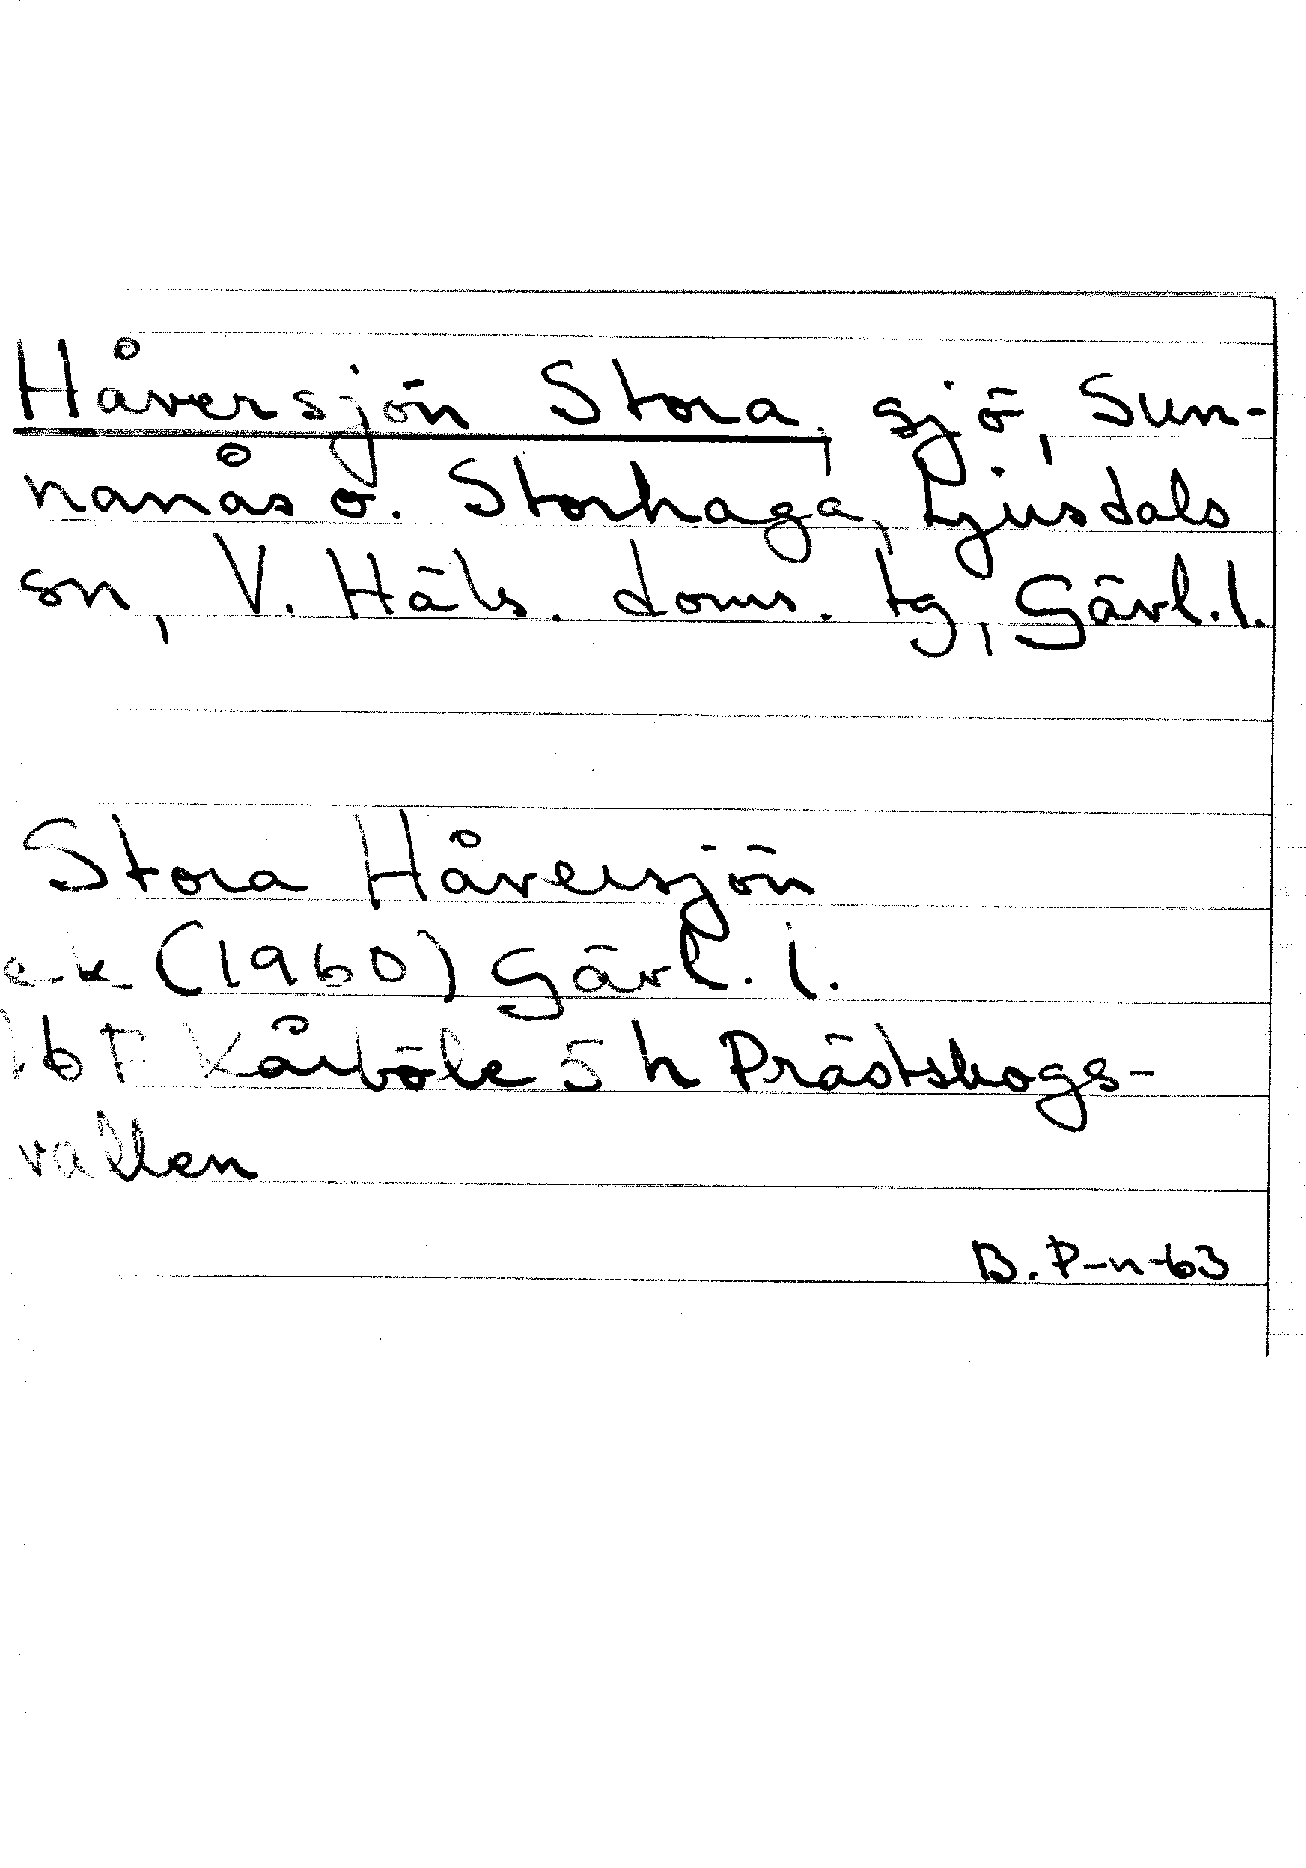 Håversjön Stora, sjö, Sun-
nanås o. Storhaga, Ljusdals
sn, V. Häls. doms. tg, Gävl. l.
Stora Håversjön
e-k (1960) Gävl. l.
Kårböle 5 h Prästskogs-
vallen
B. P-n-63